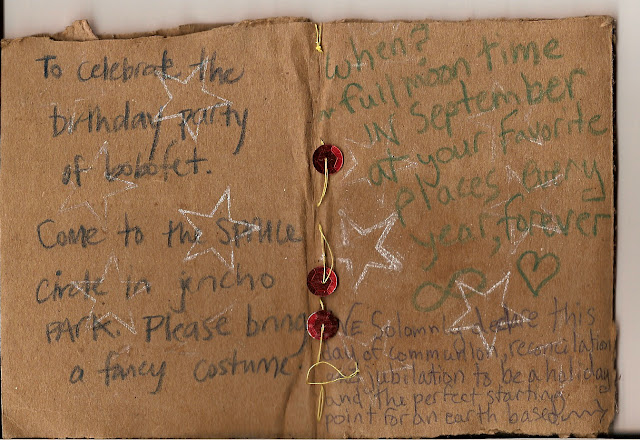 To celebrate the
birthday party
of bobofet.
Come to the SPRUCE
circle in jericho
PARK. Please bring
a fancy costume!
When?
full moon time
IN September
at your favorite
places every
year, forever
∞ ♡
WE Solomnly declare this
day of communion, reconciliation
jubilation to be a holiday,
and the perfect starting
point for an earth based